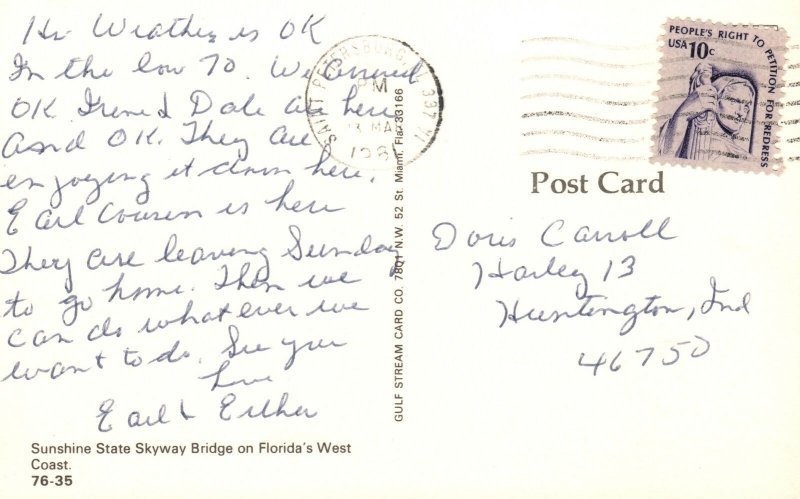 Hi Weather is OK
In the low 70. We arrived
OK. Irene & Dale are here
And OK. They are
enjoying it down here.
Earl Cousin is here
They are leaving Sunday
to go home. Then we
can do what ever we
want to do. See you
Love
Earl & Esther
Sunshine State Skyway Bridge on Florida's West
Coast.
76-35
SAINT PETERSBURG, FL 337
PM
MA
198
GULF STREAM CARD CO. 7801 N.W. 52 St. Miami, Fla. 33166
PEOPLE'S RIGHT TO PETITION FOR REDRESS
USA 10c
Post Card
Doris Carroll
Harley 13
Huntington, Ind
46750